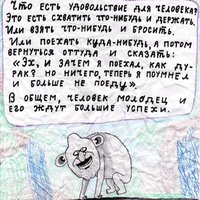 Что есть удовольствие для человека?
Это есть схватить что-нибудь и держать.
Или взять что-нибудь и бросить.
Или поехать куда-нибудь, а потом
вернуться оттуда и сказать:
«Эх, и зачем я поехал, как ду-
рак? Но ничего, теперь я поумнел
и больше не поеду».
В общем, человек молодец и
его ждут большие успехи.